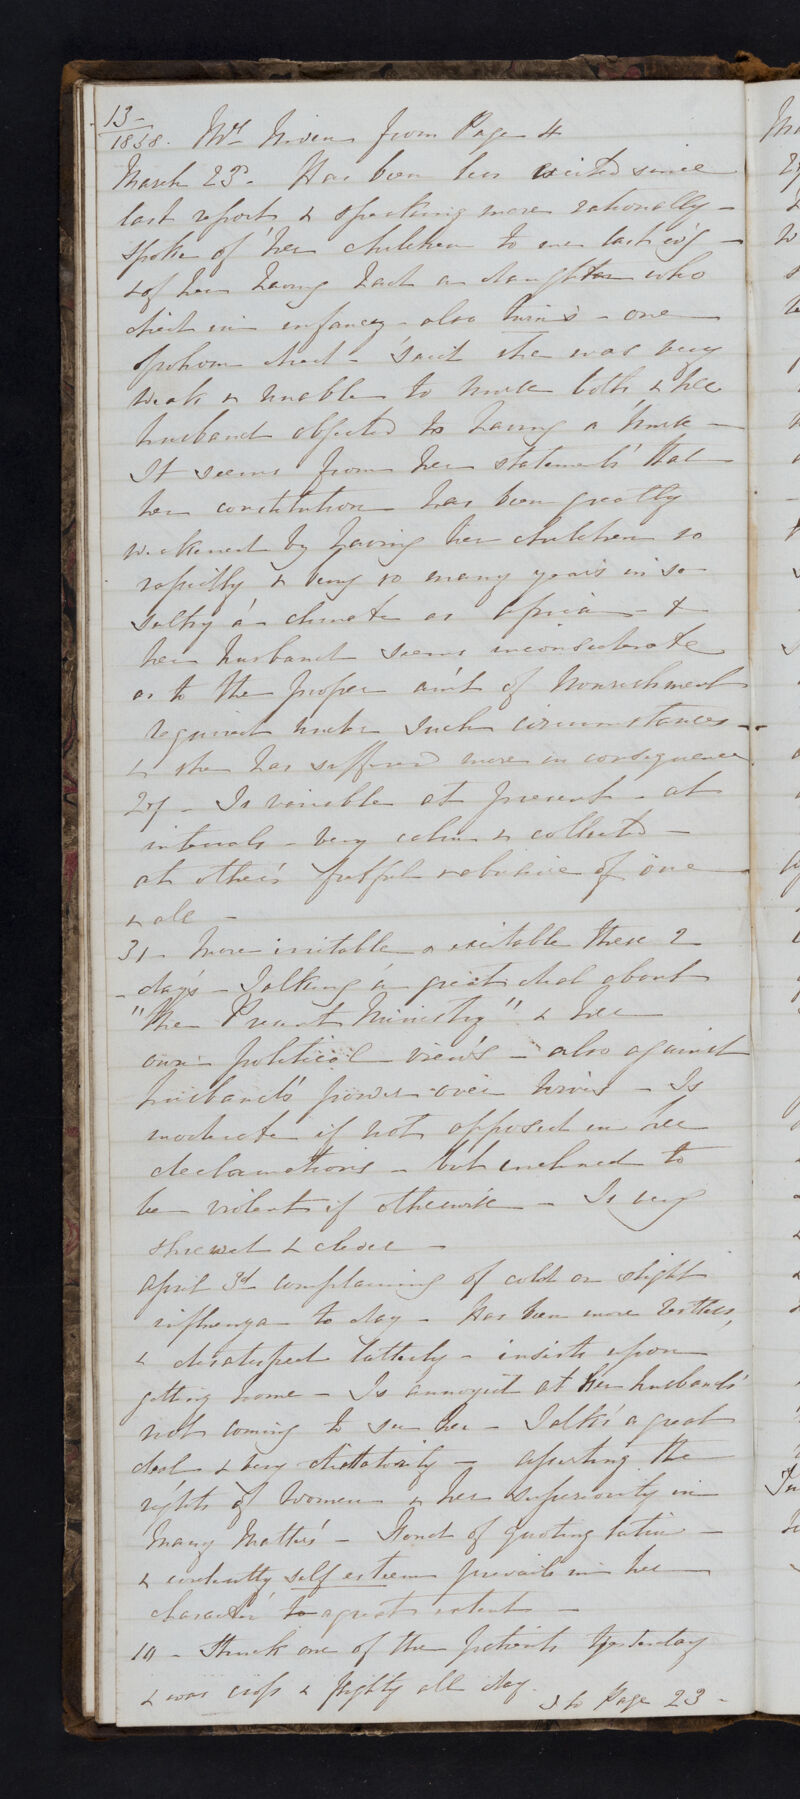 13-
1858. Mrs Niven from Page 4
March 23d. Has been less excited since
last report & speaking more rationally -
spoke of her children to me last ev'g -
& of her having had a daughter who
died in infancy - also twins - one
of whom died - said she was very
weak & unable to nurse both & her
husband objected to having a nurse -
It seems from her statements that
her constitution has been greatly
weakened by having her children so
rapidly & being so many years in so
sultry a climate as Africa - &
her husband seems inconsiderate
as to the proper am't of nourishment
required under such circumstances -
& she has suffered more in consequence
27 - Is variable at present - at
intervals - very calm & collected -
at others fretful & abusive of one
& all -
31 - More irritable & excitable these 2
days - Talking a great deal about
"The Present Ministry" & her
own political views - also against
husbands' power over wives - Is
moderate if not opposed in her
declamations - but inclined to
be violent if otherwise - Is very
shrewd & clever -
April 3d complaining of cold or slight
influenza to day - Has been more restless,
& dissatisfied latterly - insists upon
getting home - Is annoyed at her husband's
not coming to see her - Talks a great
deal & very dictatorily - asserting the
rights of Women & her superiority in
many matters - Fond of quoting latin -
& evidently self esteem prevails in her
character to a great extent -
10 - Struck one of the patients yesterday
& was cross & flighty all day. to Page 23 -